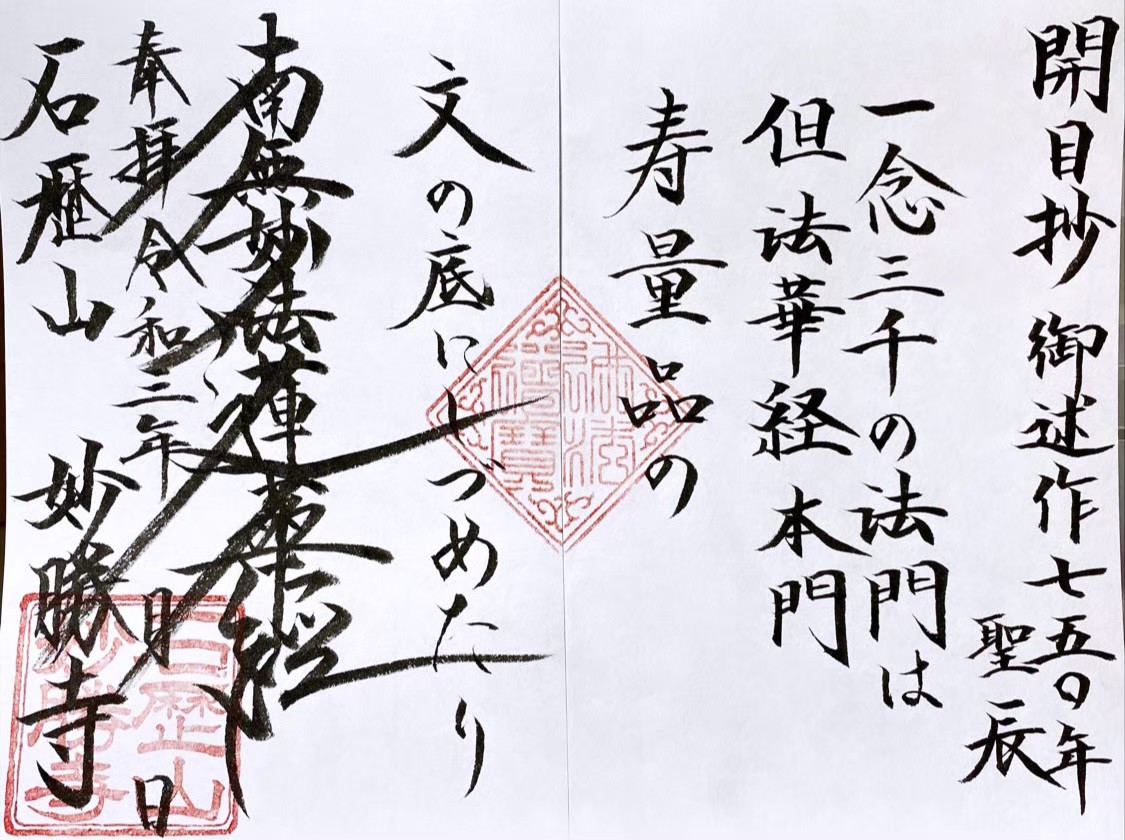 開目抄 御述作七五〇年
聖辰
一念三千の法門は
但法華経本門
寿量品の
文の底にしづめたり
南無妙法蓮華経
奉拝 令和二年 月 日
石歴山 妙勝寺
石歴山
妙勝寺